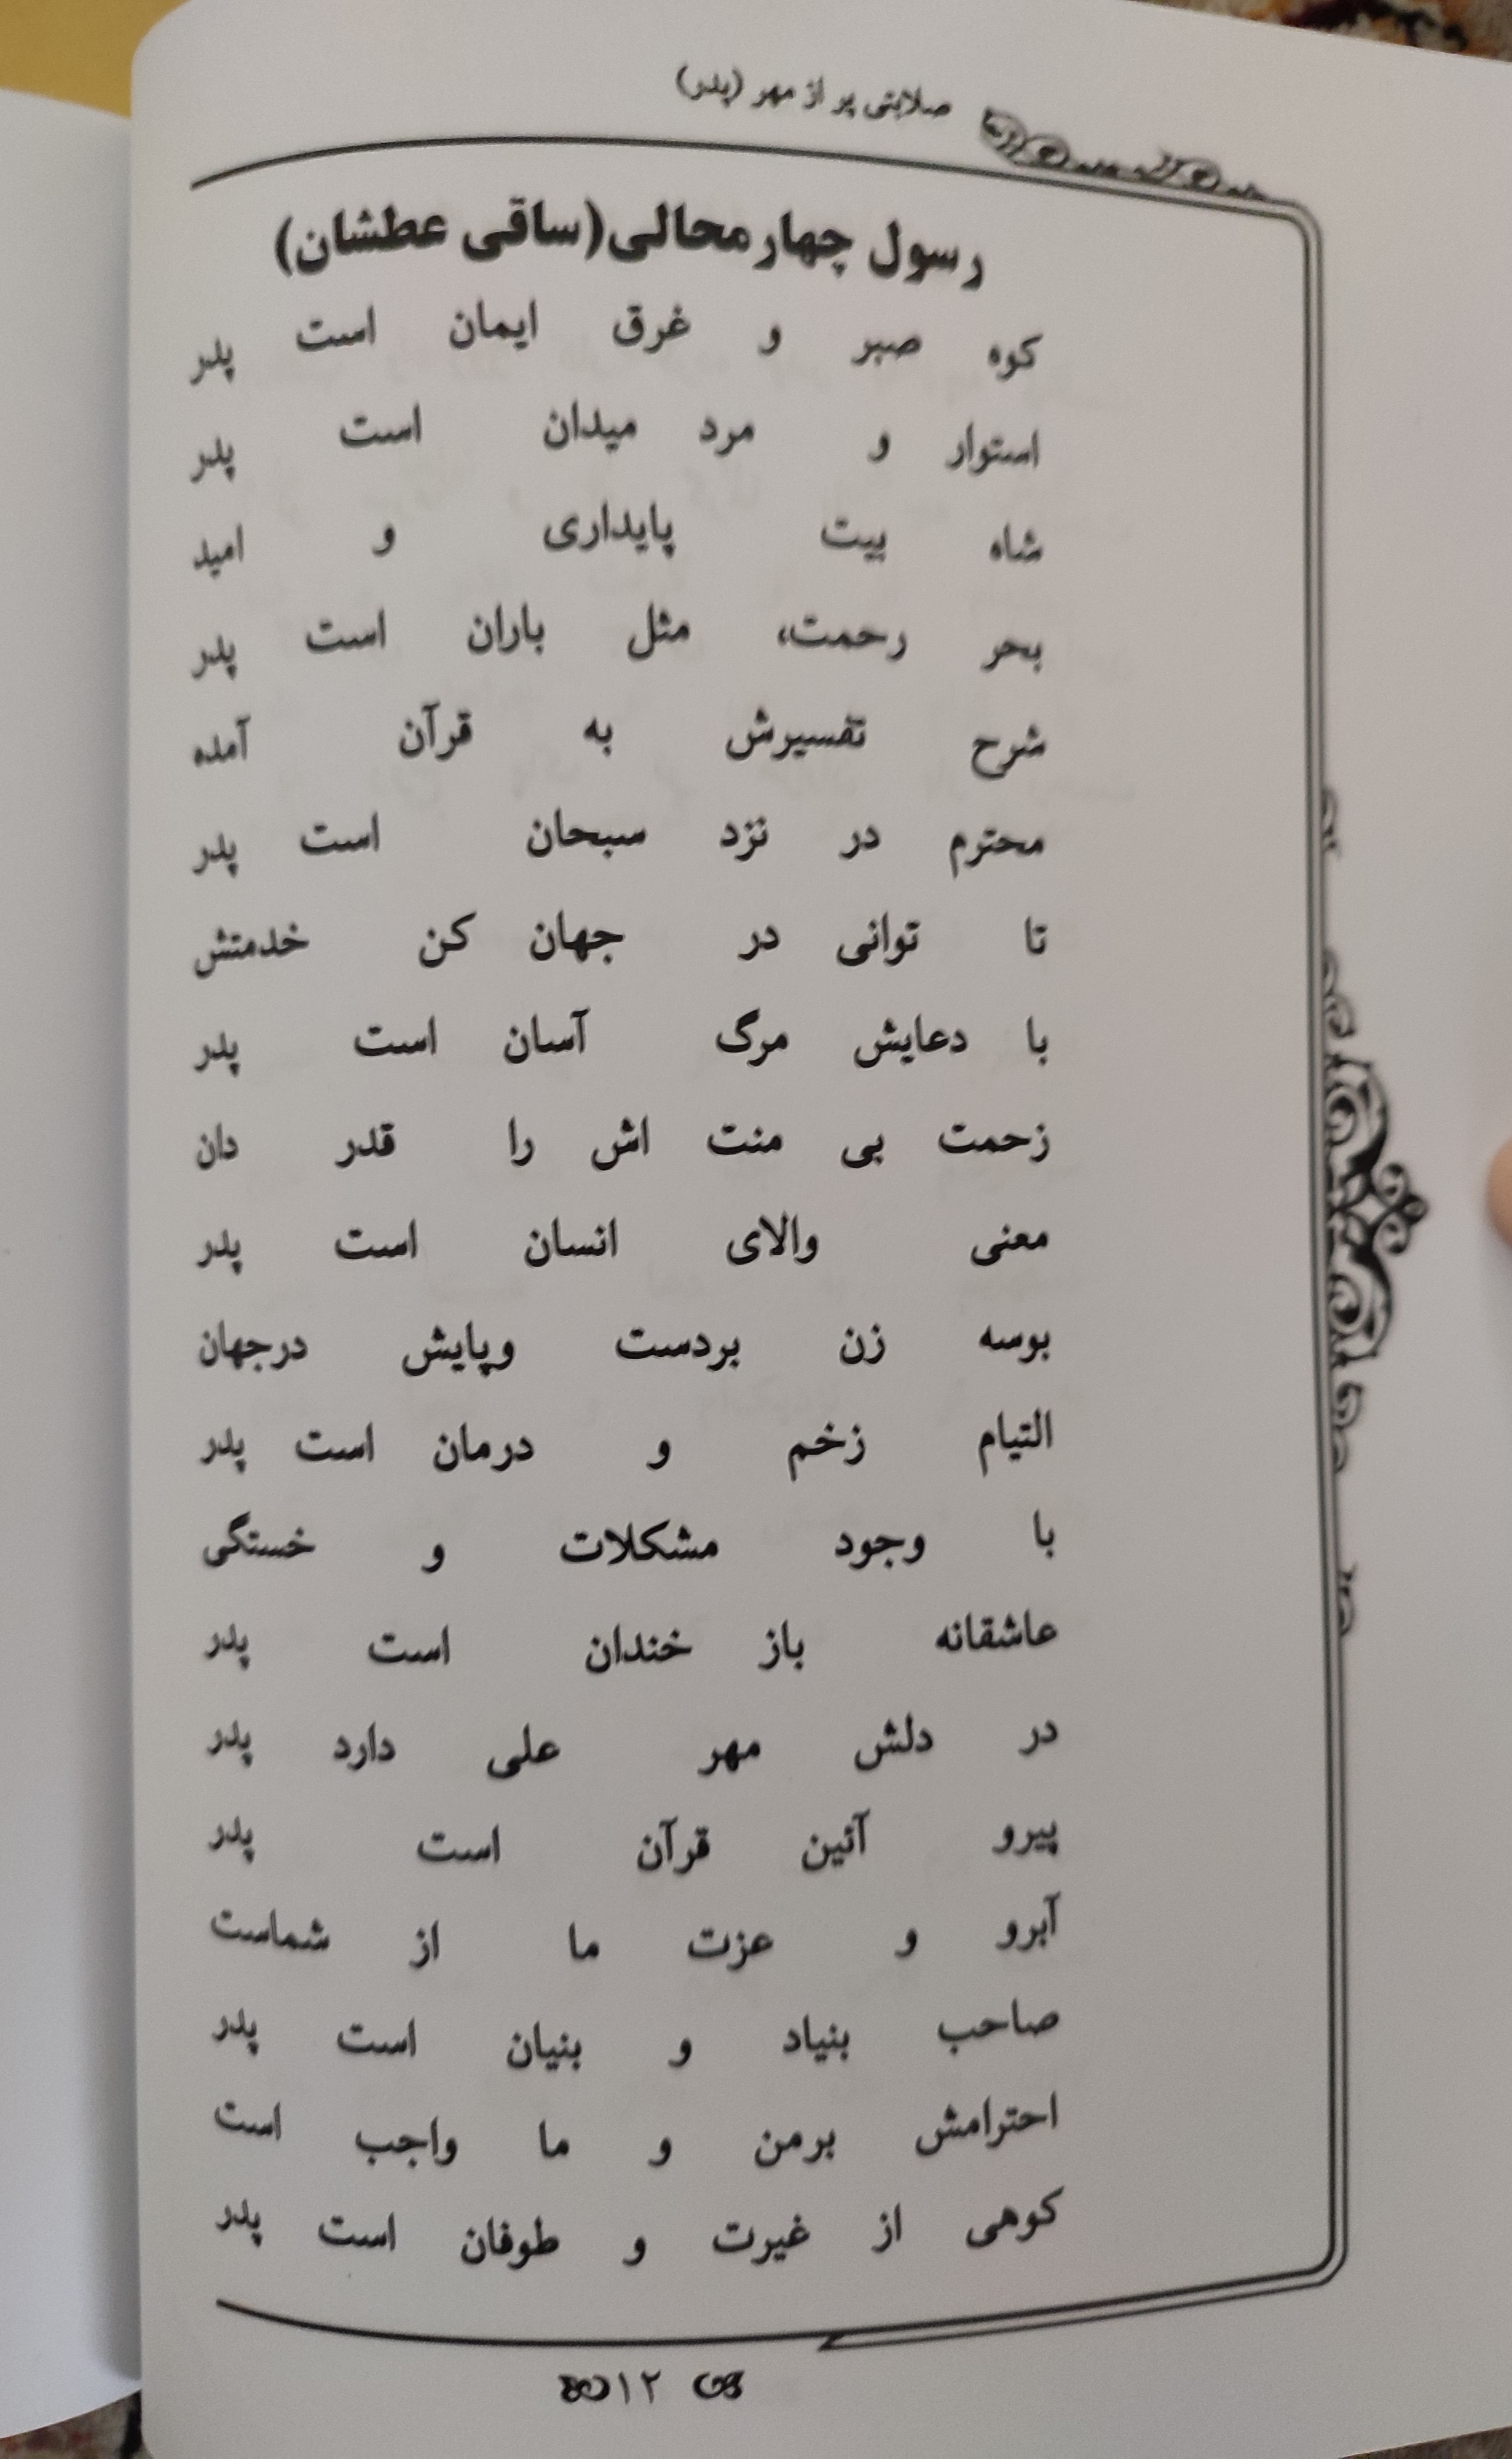 صلابتی پر از مهر (پدر)
رسول چهارمحالی(ساقی عطشان)
کوه صبر و غرق ایمان است پدر
استوار و مرد میدان است پدر
شاه بیت پایداری و امید
بحر رحمت، مثل باران است پدر
شرح تفسیرش به قرآن آمده
محترم در نزد سبحان است پدر
تا توانی در جهان کن خدمتش
با دعایش مرگ آسان است پدر
زحمت بی منت اش را قدر دان
معنی والای انسان است پدر
بوسه زن بردست وپایش درجهان
التیام زخم و درمان است پدر
با وجود مشکلات و خستگی
عاشقانه باز خندان است پدر
در دلش مهر علی دارد پدر
پیرو آئین قرآن است پدر
آبرو و عزت ما از شماست
صاحب بنیاد و بنیان است پدر
احترامش برمن و ما واجب است
کوهی از غیرت و طوفان است پدر
۱۲